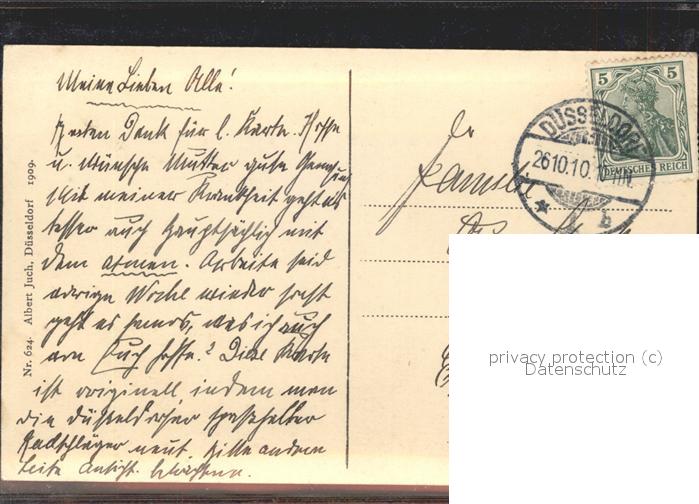 Meine Lieben Alle!
Besten Dank für l. Karte. Hoffe
u. wünsche Mutter gute Genesung
Mit meiner Krankheit geht es
besser auch hauptsächlich mit
dem atmen. Arbeite seid
voriger Woche wieder sonst
geht es famos, was ich auch
von Euch hoffe. Diese Karte
ist originell, indem man
die Düsseldorfer spasshalber
Radschläger nennt. Bitte andere
Seite Ansicht
Nr. 624. Albert Juch, Düsseldorf 1909.
5 5
DEUTSCHES REICH
DÜSSELDORF
26.10.10.
* b
Familie
privacy protection (c)
Datenschutz